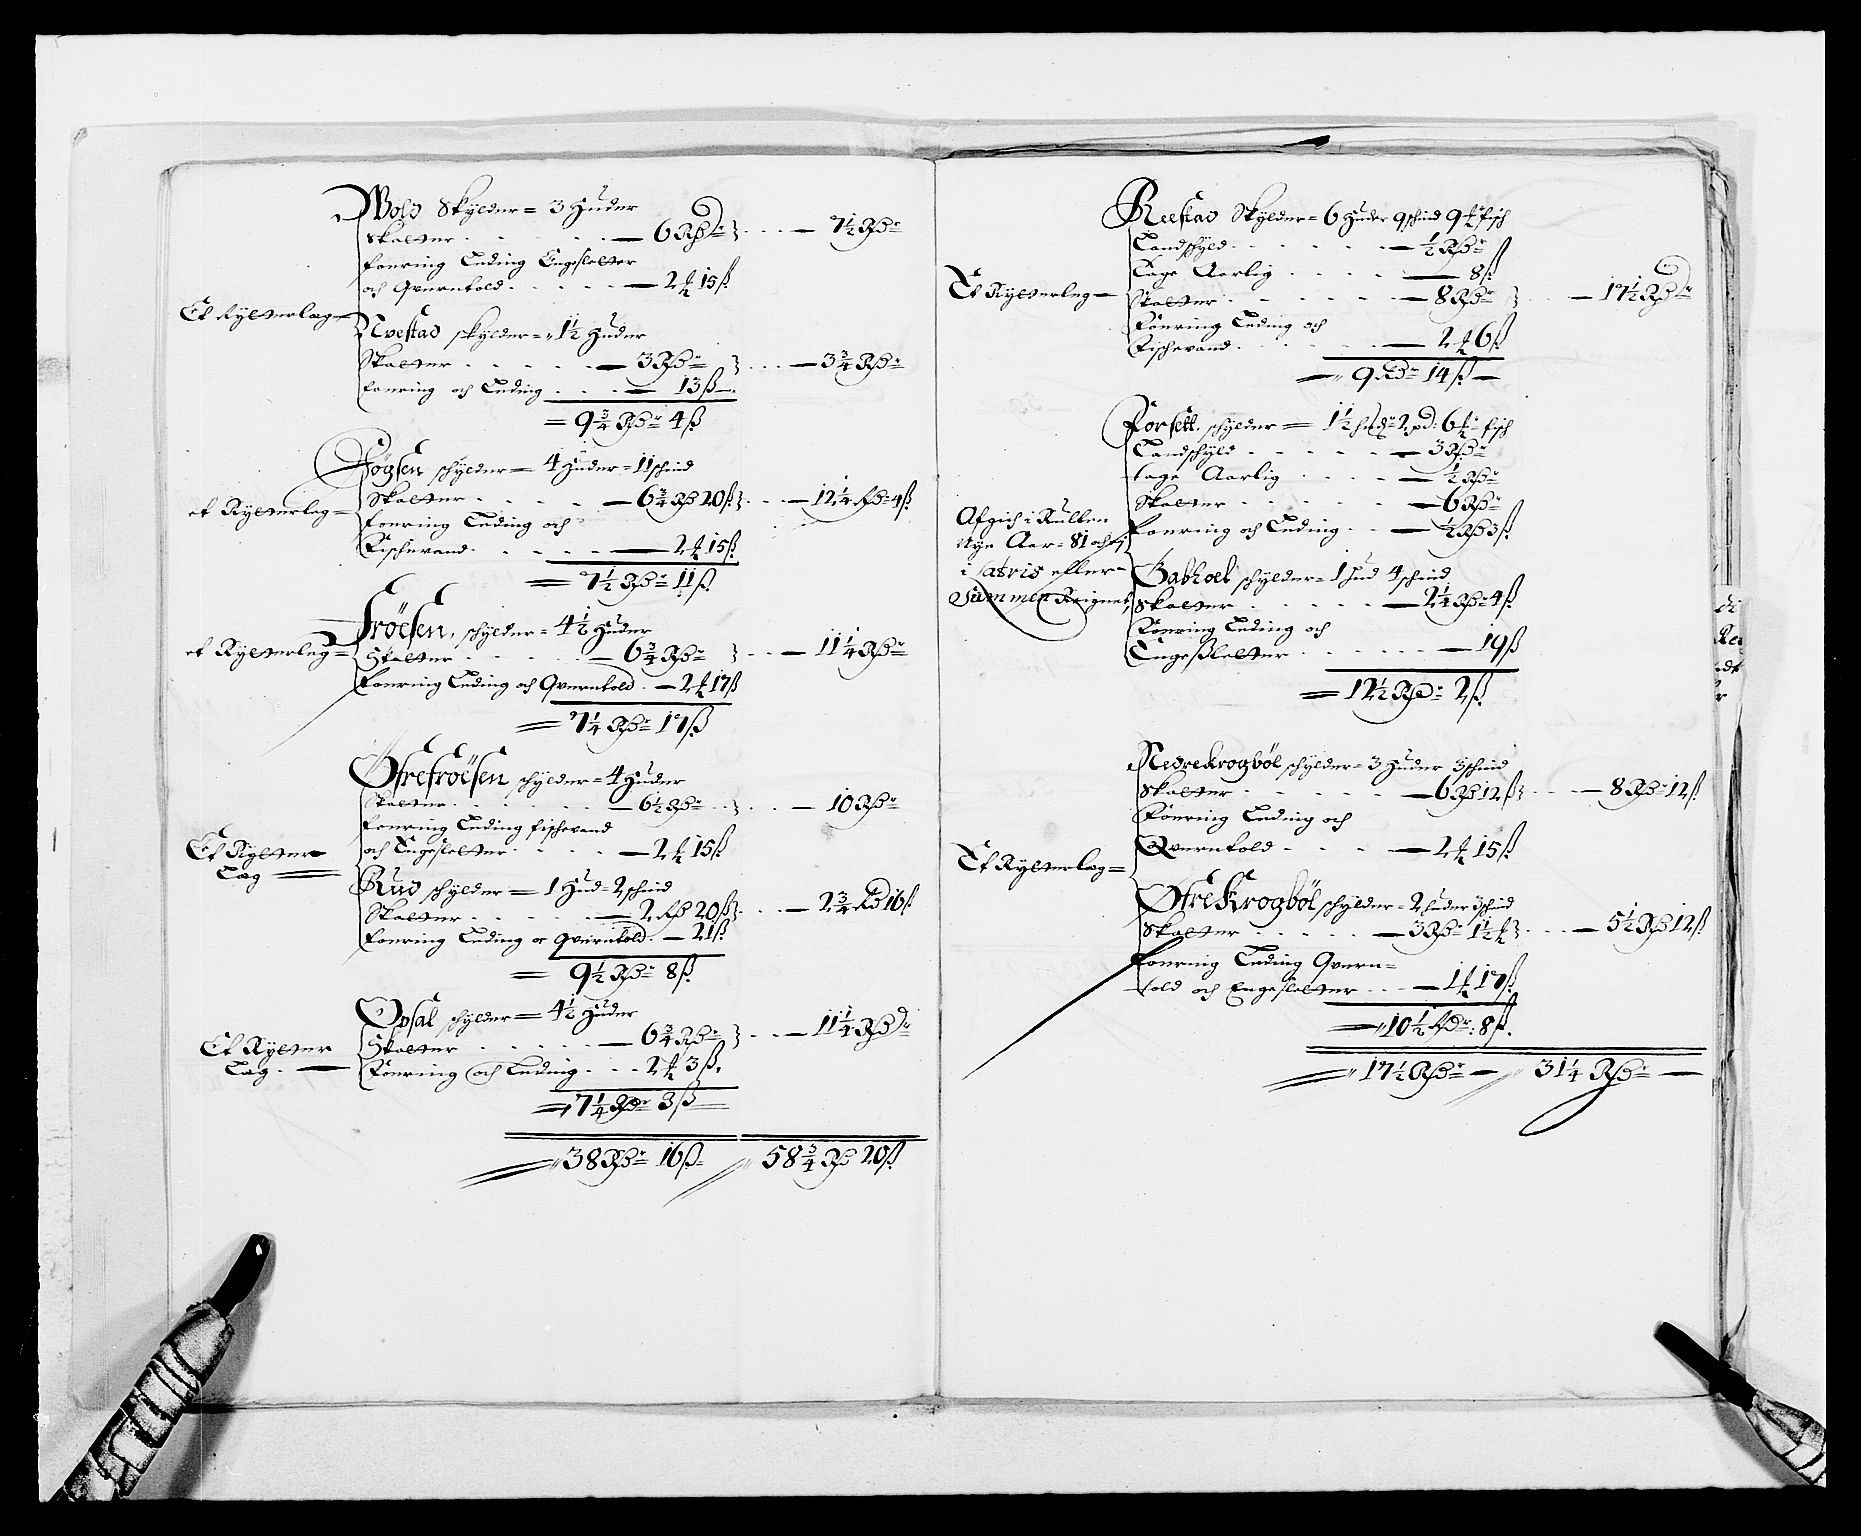 Wold Skylder = 3 Huder
Skatter . . . . . — 6 Rdr } . . . — 7½ Rdr
foering Leding Engesletter
och Qverntold . . . . . — 2 ₰ 15 ß
Et Rytterlag —
Nuestad skylder = 1½ Huder
Skatter . . . . . — 3 Rdr } . . . — 3¾ Rdr
foering och Leding . . . — 13 ß —
= 9¾ Rdr 4 ß
Fögsen schylder = 4 Huder = 11 schind
Skatter . . . . — 6¾ Rd 20 ß } . . . — 12¼ Rdr 4 ß
et Rytterleg =
foering Leding och
Fischevand . . . . . — 2 ₰ 15 ß
= 7½ Rdr 11 ß
Fröesen, schylder = 4½ Huder
et Rytterleg =
Skatter . . . . . — 6¾ Rdr } . . . — 11¼ Rdr
Foering Leding och Qverntold . — 2 ₰ 17 ß
= 7¼ Rdr 17 ß
Öfrefröesen schylder = 4 Huder
Skatter . . . . . — 6½ Rdr . . } . . . — 10 Rdr
foering Leding fischevand
och Engesletter . . . . — 2 ₰ 15 ß
Et Rytter
Lag =
Rud schylder = 1 Hud = 2 schind
Skatter . . . . . — 2 Rd 20 ß } . . . — 2¾ Rd 16 ß
foering Leding oc Qverntold . — 21 ß
= 9½ Rdr 8 ß
Opsal schylder = 4½ Huder
Et Rytter
Lag . —
Skatter . . . . . — 6¾ Rdr } . . . — 11¼ Rdr
Foering och Leding . . . 2 ₰ 3 ß
= 7¼ Rdr 3 ß
= 38 Rdr 16 ß = 58¾ Rd 20 ß
Reestad Skylder = 6 Huder 9 schind 9 ₰ fisch
Landschyld . . . . . — ½ Rdr
Tage Aarlig . . . . — 8 ß
Et Rytterleg —
Skatter . . . . . — 8 Rdr } . . . — 17½ Rdr
Foering Leding och
Fischevand . . . . . — 2 ₰ 6 ß
— 9 Rdr 14 ß —
Forsett schylder = 1½ hud 2 pd: 6 ₰ fisch
Landschyld . . . . . — 3 Rdr
tage Aarlig . . . . — ½ Rdr
Skatter . . . . . — 6 Rdr
foering och Leding . . — ½ Rd 3 ß
Afgich i Rullen
Nye Aar = 81 och
i latris eller
Summen Reignet
Gabhoel schylder = 1 hud 4 schind
Skatter . . . . . — 2¼ Rdr 4 ß
Foering Leding och
Engesletter . . . . . — 19 ß
= 12½ Rdr 2 ß
Nedrekrogböl schylder = 3 Huder 3 schind
Skatter . . . . . — 6 Rd 12 ß } . . . — 8 Rdr 12 ß
Foering Leding och
Qverntold . . . . — 2 ₰ 15 ß
Et Rytterlag =
Öfrekrogböl schylder = 2 huder 3 schind
Skatter . . . . . — 3 Rdr 1½ ₰ } . . . — 5½ Rd 12 ß
foering Leding Qvern =
told och Engesletter . . . — 1 ₰ 17 ß
— 10½ Rdr: 8 ß.
= 17½ Rdr — 31¼ Rdr —